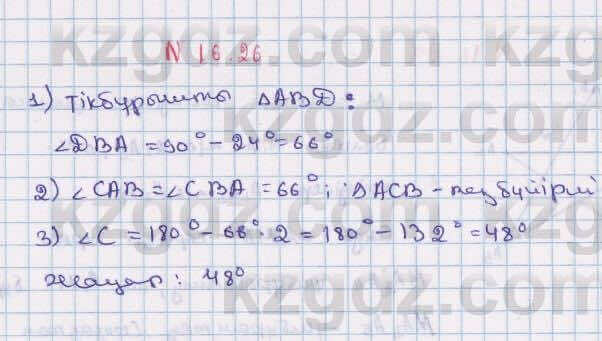 N 16.26
1) Тікбұрышты ΔABD:
∠DBA = 90° - 24° = 66°
2) ∠CAB = ∠CBA = 66°; ΔACB - теңбүйірлі
3) ∠C = 180° - 66° · 2 = 180° - 132° = 48°
Жауап: 48°
kzgdz.com